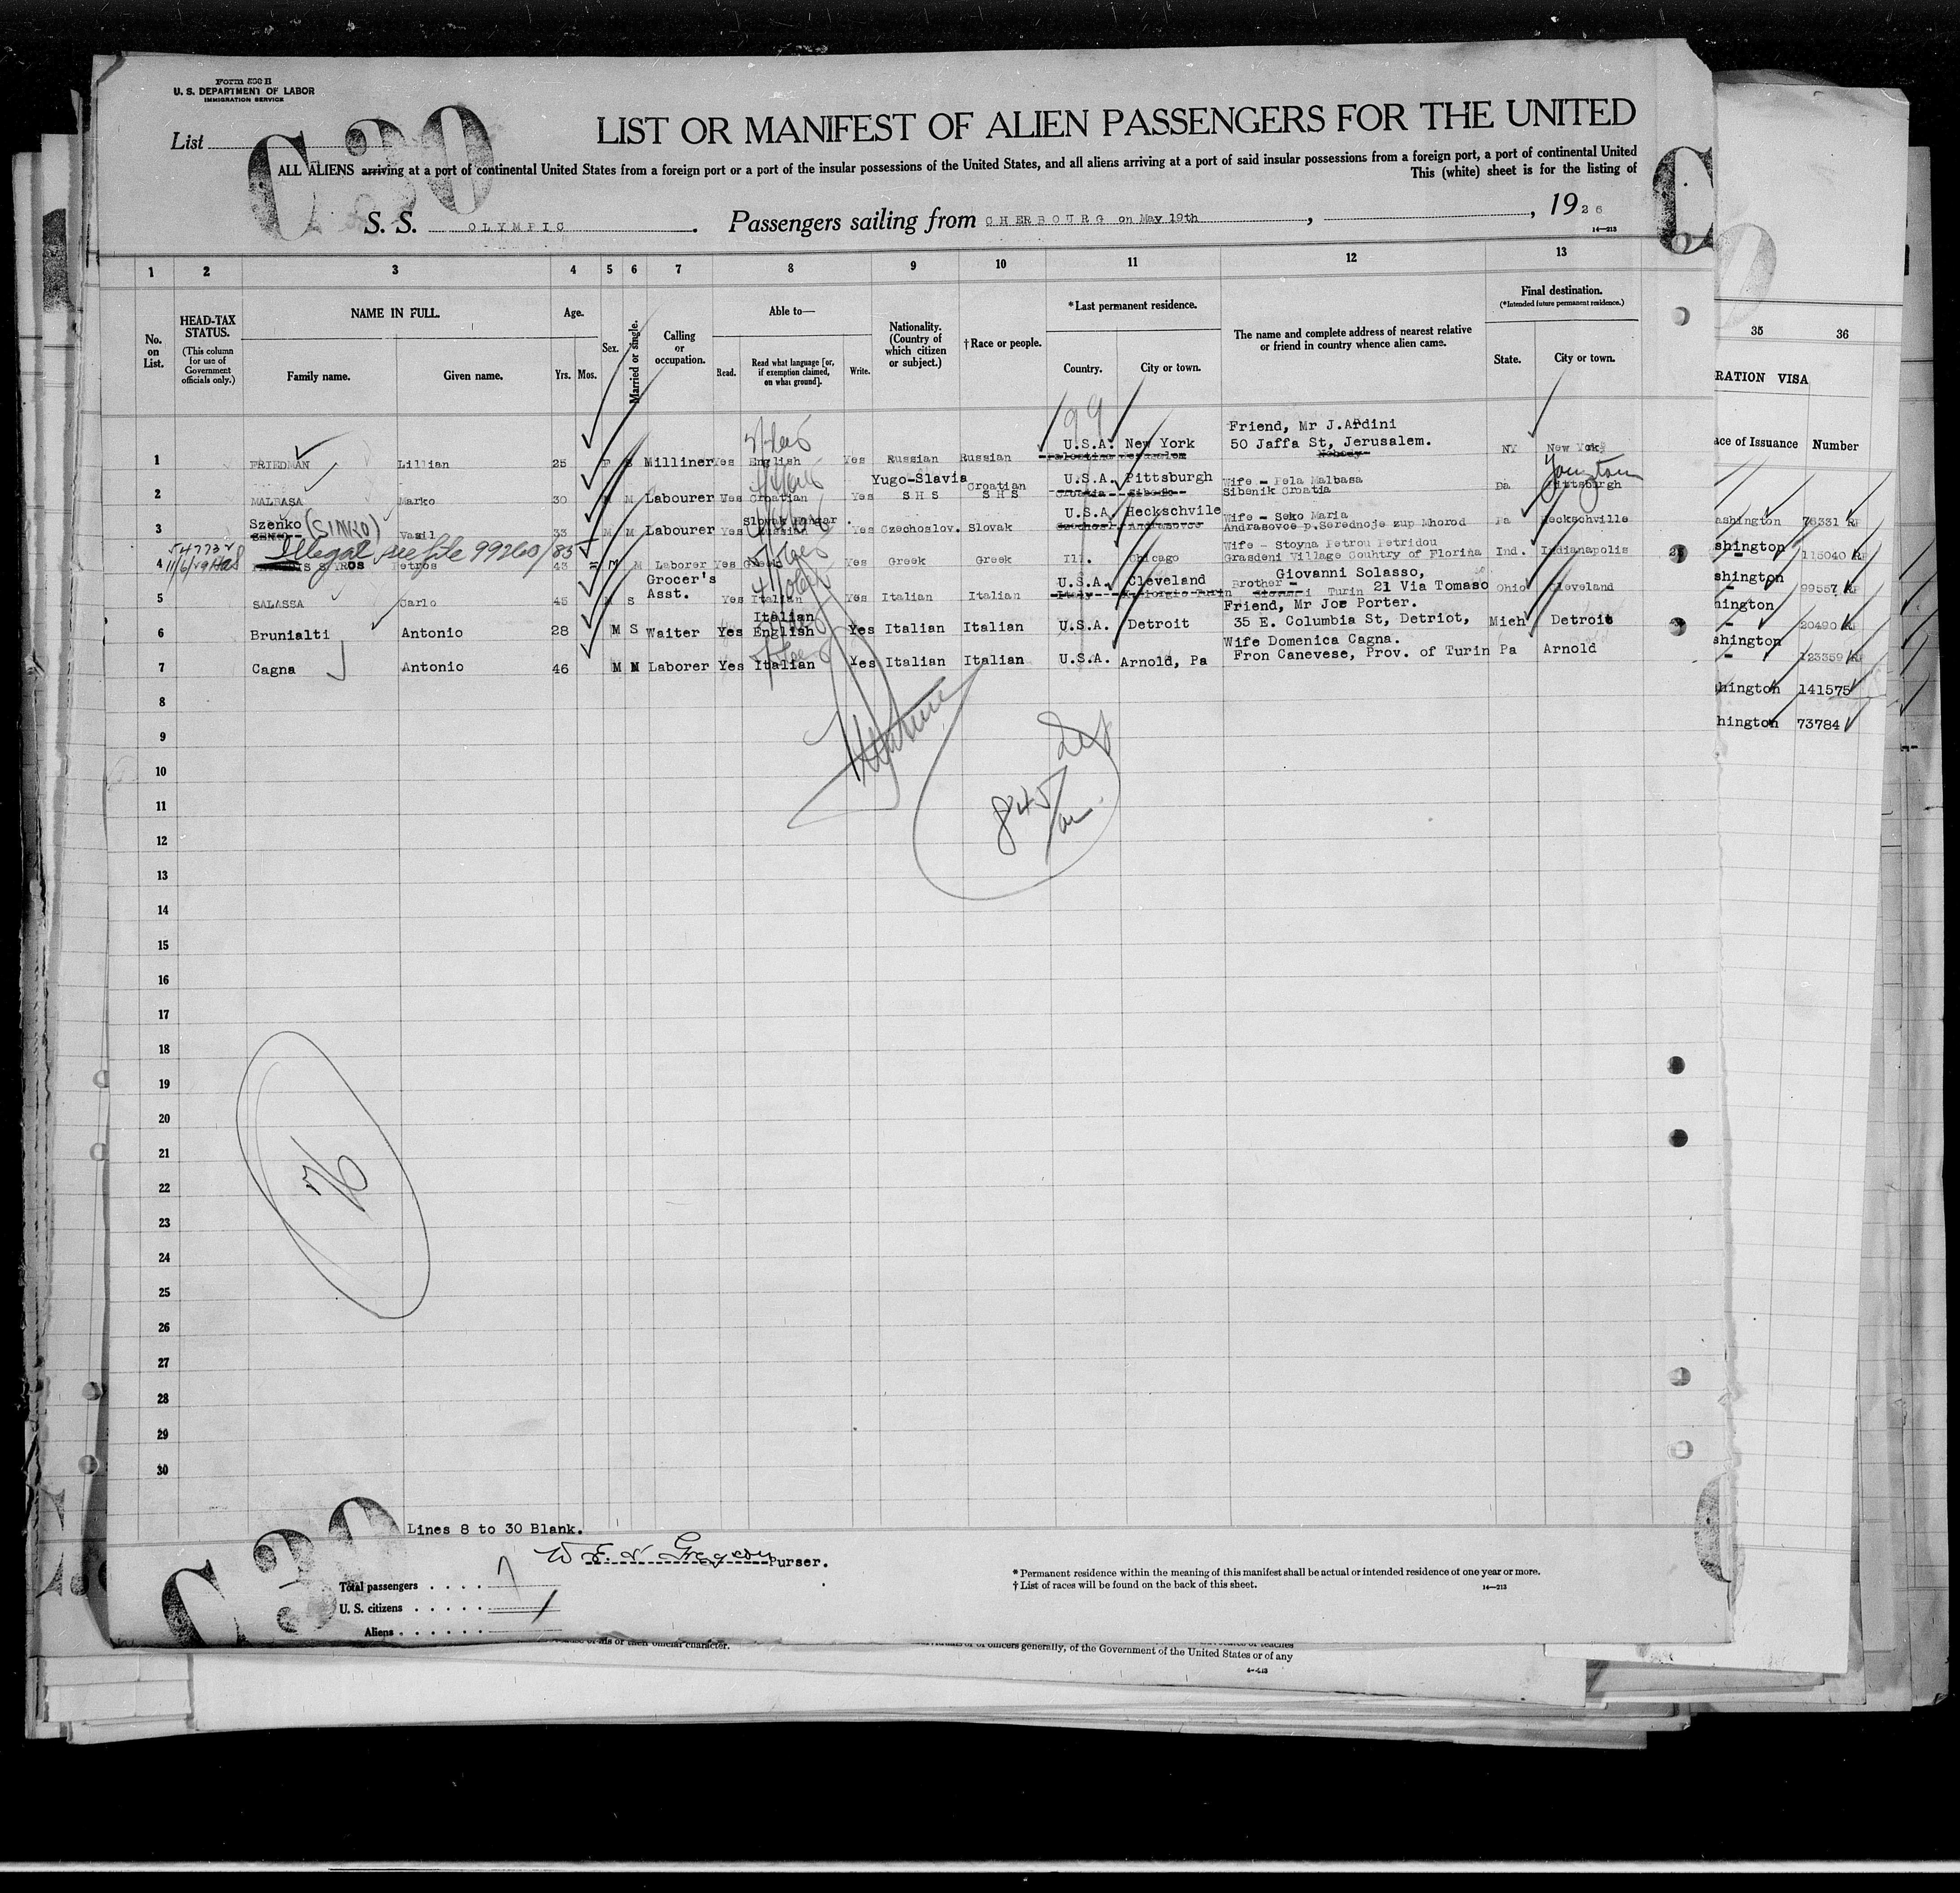 Form 500 B
U. S. DEPARTMENT OF LABOR
IMMIGRATION SERVICE
List
C 30
LIST OR MANIFEST OF ALIEN PASSENGERS FOR THE UNITED
ALL ALIENS arriving at a port of continental United States from a foreign port or a port of the insular possessions of the United States, and all aliens arriving at a port of said insular possessions from a foreign port, a port of continental United
This (white) sheet is for the listing of
S. S. OLYMPIC . Passengers sailing from CHERBOURG on May 19th , , 1926
14—213
1 2 3 4 5 6 7 8 9 10 11 12 13
No. on List.
HEAD-TAX STATUS.
(This column for use of Government officials only.)
NAME IN FULL.
Family name. Given name.
Age.
Yrs. Mos.
Sex.
Married or single.
Calling or occupation.
Able to—
Read. Read what language [or, if exemption claimed, on what ground]. Write.
Nationality. (Country of which citizen or subject.)
†Race or people.
*Last permanent residence.
Country. City or town.
The name and complete address of nearest relative or friend in country whence alien came.
Final destination.
(*Intended future permanent residence.)
State. City or town.
35 36
RATION VISA
ace of Issuance Number
99
Friend, Mr J.Ardini
U.S.A. New York 50 Jaffa St, Jerusalem.
1 FRIEDMAN Lillian 25 F S Milliner Yes English Yes Russian Russian Palestine Jerusalem Nobody NY New York
Yugo-Slavia U.S.A. Pittsburgh Wife - Pela Malbasa
2 MALBASA Marko 30 M M Labourer Yes Croatian Yes S H S Croatian S H S Croatia Sibenik Sibenik Croatia Pa Pittsburgh
Szenko (SINKO) U.S.A. Heckschvile Wife - Seko Maria
3 Vasil 33 M M Labourer Yes Yes Czechoslov. Slovak Andrasovce p.Serednoje zup Mhorod Pa Heckschville
Illegal see file 99260/85
Wife - Stoyna Petrou Petridou
4 Petros 43 M M Laborer Yes Greek Yes Greek Greek Ill. Chicago Grasdeni Village Country of Florina Ind. Indianapolis
Grocer's Asst. U.S.A. Cleveland Brother - Giovanni Solasso,
5 SALASSA Carlo 45 M S Yes Italian Yes Italian Italian Italy Turin 21 Via Tomaso Ohio Cleveland
Italian Friend, Mr Joe Porter.
6 Brunialti Antonio 28 M S Waiter Yes English Yes Italian Italian U.S.A. Detroit 35 E. Columbia St, Detriot, Mich Detroit
Wife Domenica Cagna.
7 Cagna Antonio 46 M M Laborer Yes Italian Yes Italian Italian U.S.A. Arnold, Pa Fron Canevese, Prov. of Turin Pa Arnold
ashington 76331
shington 115040
shington 99557
hington 20490
shington 123359
shington 141575
hington 73784
8
9
10
11
12
13
14
15
16
17
18
19
20
21
22
23
24
25
26
27
28
29
30
845
C 30
Lines 8 to 30 Blank.
Purser.
Total passengers . . . . 7
U. S. citizens . . . . .
Aliens . . . . . .
* Permanent residence within the meaning of this manifest shall be actual or intended residence of one year or more.
† List of races will be found on the back of this sheet.
14—213
of his or their official character.
of officers generally, of the Government of the United States or of any